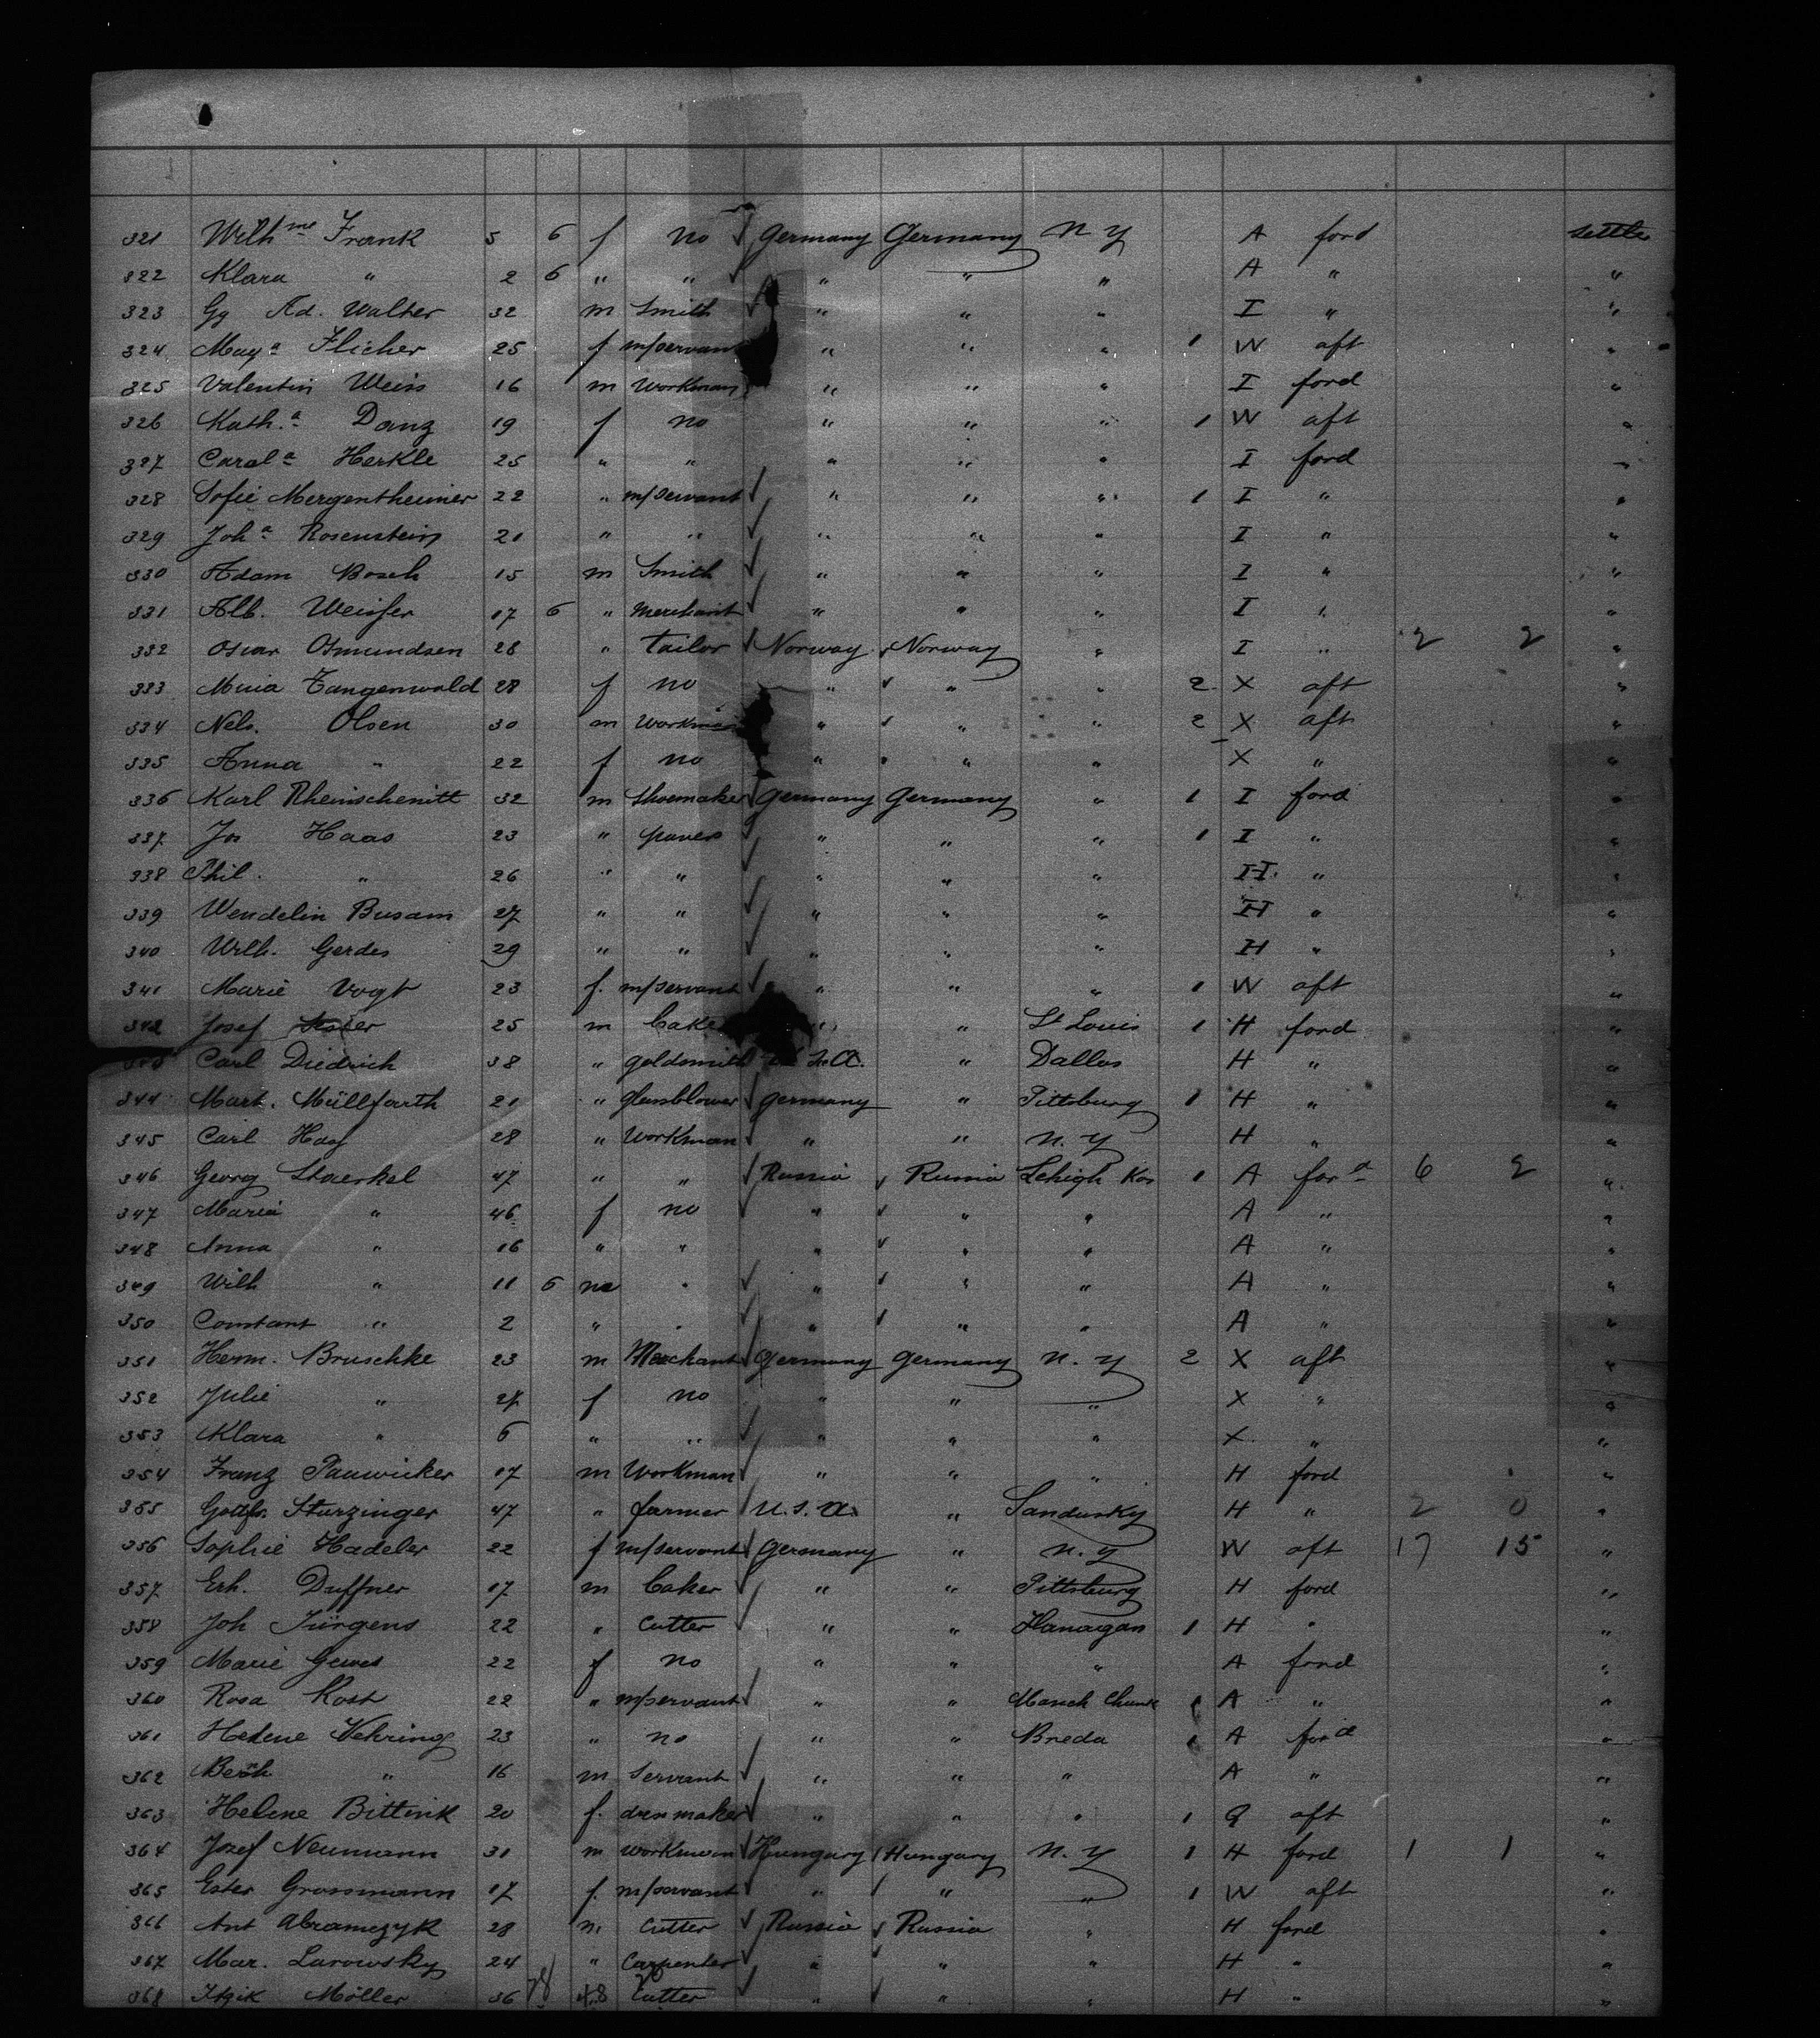 321 Wilh me Frank 5 6 f no Germany Germany N Y A ford settler
322 Klara " 2 6 " " " " " A " "
323 Gg Ad. Walter 32 m Smith " " " I " "
324 25 f m/servant " " " 1 W aft "
325 Valentin Weiss 16 m Workman " " " I ford "
326 Kath. a Danz 19 f no " " " 1 W aft "
327 Carol a Herkle 25 " " " " " I ford "
328 Sofie Mergentheimer 22 " m/servant " " " 1 I " "
329 Joh a Rosenstein 21 " " " " " I " "
330 Adam Bosch 15 m Smith " " " I " "
331 Alb. 17 6 " merchant " " " I " "
332 Oscar Osmundsen 28 " tailor Norway Norway " I " 2 2 "
333 Tangenwald 28 f no " " " 2 X aft "
334 Nels. Olsen 30 m Workman " " " 2 X aft "
335 Anna " 22 f no " " " X " "
336 Karl Rheinschenitt 32 m Shoemaker Germany Germany " 1 I ford "
337 Jos Haas 23 " paver " " " 1 I " "
338 Phil. " 26 " " " " " H " "
339 Wendelin Busam 27 " " " " " H " "
340 Wilh. Gerdes 29 " " " " " H " "
341 Marie Vogt 23 f. m/servant " " " 1 W aft "
342 Josef 25 m baker " " St Louis 1 H ford "
343 Carl Diedrich 38 " goldsmith U.S.A. " Dallas H " "
344 Mart. Müllfarth 21 " glassblower Germany " Pittsburg 1 H " "
345 Carl Hag 28 " Workman " " N. Y H " "
346 Georg Staerkel 47 " " Russia Russia Lehigh Kas 1 A ford 6 2 "
347 Maria " 46 f no " " " A " "
348 Anna " 16 " " " " " A " "
349 Wilh " 11 6 m " " " " A " "
350 Constant " 2 " " " " " A " "
351 Herm. Bruschke 23 m Merchant Germany Germany N. Y 2 X aft "
352 Julie " 27 f no " " " X " "
353 Klara " 6 " " " " " X " "
354 Franz Pauwicker 17 m Workman " " " H ford "
355 Gottfr. Sturzinger 47 " farmer U.S.A. " Sandusky H " 2 0 "
356 Sophie Hadeler 22 f m/servant Germany " N. Y W aft 17 15 "
357 Erh. Duffner 17 m baker " " Pittsburg H ford "
358 Joh Jürgens 22 " Cutter " " Flanagan 1 H " "
359 Marie Gewes 22 f no " " " A ford "
360 Rosa Kost 22 " m/servant " " Mauch Chunk 1 A " "
361 Helene Wehring 23 " no " " Breda 1 A ford "
362 " 16 m Servant " " " A " "
363 Helene Bittink 20 f. dressmaker " " " 1 Q aft "
364 Jozef Neumann 31 m workman Hungary Hungary N. Y 1 H ford 1 1 "
365 Ester Grossmann 17 f. m/servant " " " 1 W aft "
366 Ant Abramczyk 28 m Cutter Russia Russia " H ford "
367 Mar. Lurowsky 24 " Carpenter " " " H " "
368 Itzik Möller 36 Cutter " " " H " "